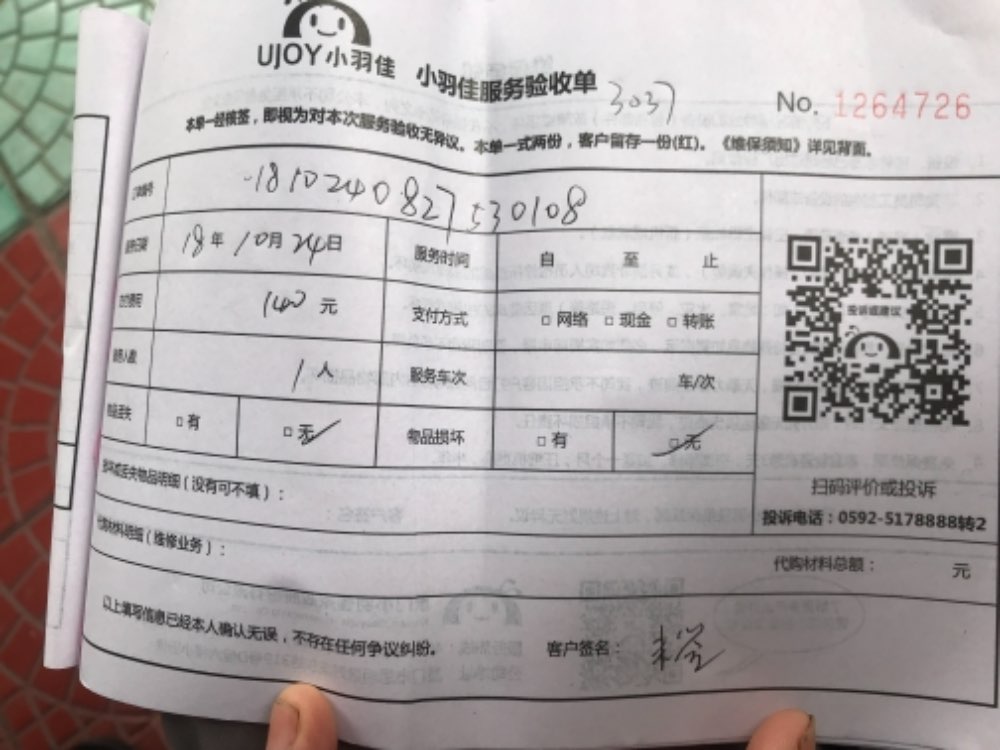 UJOY小羽佳 小羽佳服务验收单 3037 No. 1264726
本单一经核签,即视为对本次服务验收无异议。本单一式两份,客户留存一份(红)。《维保须知》详见背面。
订单编号 1810240827530108
服务日期 18年10月24日 服务时间 自 至 止
支付费用 140元 支付方式 □网络 □现金 □转账
服务人数 1人 服务车次 车/次
物品丢失 □有 □无 物品损坏 □有 □无
投诉或建议
扫码评价或投诉
投诉电话:0592-5178888转2
损坏或丢失物品明细(没有可不填):
代购材料明细(维修业务): 代购材料总额: 元
以上填写信息已经本人确认无误,不存在任何争议纠纷。 客户签名: